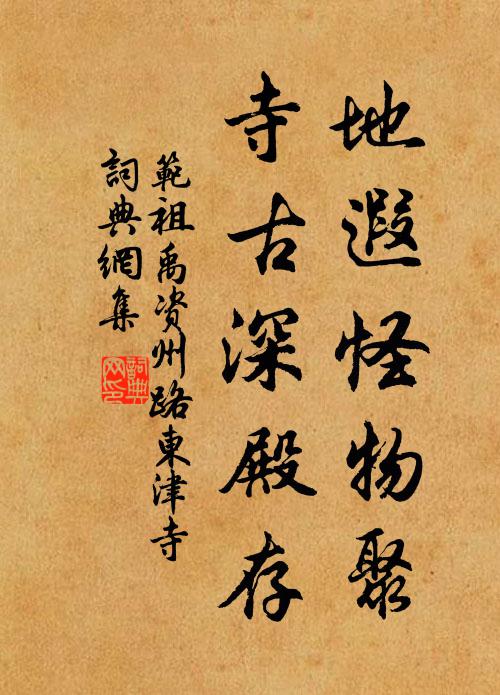 地遐怪物聚
寺古深殿存
範祖禹资州路東津寺
詞典網集
詞典網印